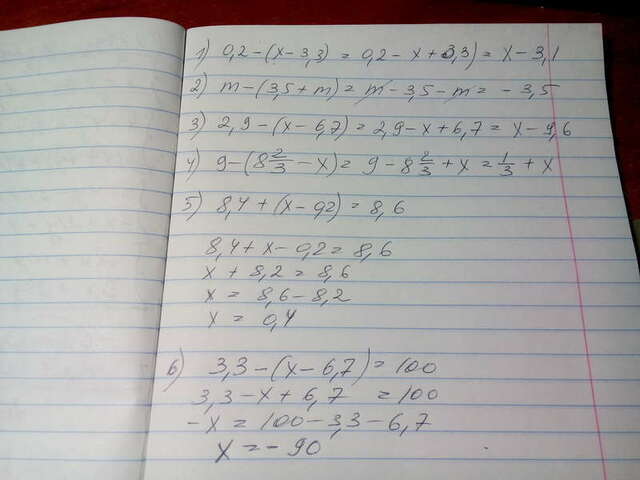 1) 0,2-(x-3,3) = 0,2-x+3,3) = x-3,1
2) m-(3,5+m)= m-3,5-m= -3,5
3) 2,9-(x-6,7)=2,9-x+6,7= x-9,6
4) 9-(8 2/3 -x)= 9-8 2/3 +x= 1/3 +x
5) 8,4+(x-0,2)=8,6
8,4+x-0,2=8,6
x+8,2=8,6
x = 8,6-8,2
x = 0,4
6) 3,3-(x-6,7)=100
3,3-x+6,7 =100
-x = 100-3,3-6,7
x = -90